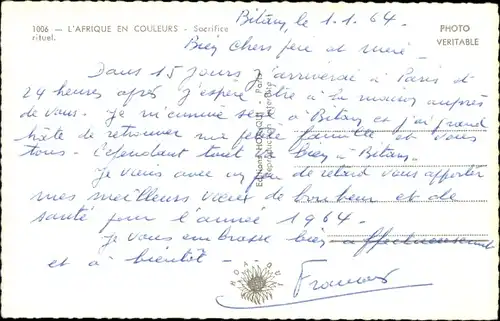 1006 - L'AFRIQUE EN COULEURS - Sacrifice
rituel.
PHOTO
VERITABLE
Bitam, le 1.1.64.
Bien chers père et mère -
Dans 15 jours j'arriverai à Paris et
24 heures après j'espère être à la maison auprès
de vous. Je m'ennuie seul à Bitam et j'ai grand
hâte de retrouver ma petite famille et vous
tous - Cependant tout va bien à Bitam.
Je viens avec un peu de retard vous apporter
mes meilleurs vœux de bonheur et de
santé pour l'année 1964.
Je vous embrasse bien affectueusement
et à bientôt -
Francis
HOA-QUI